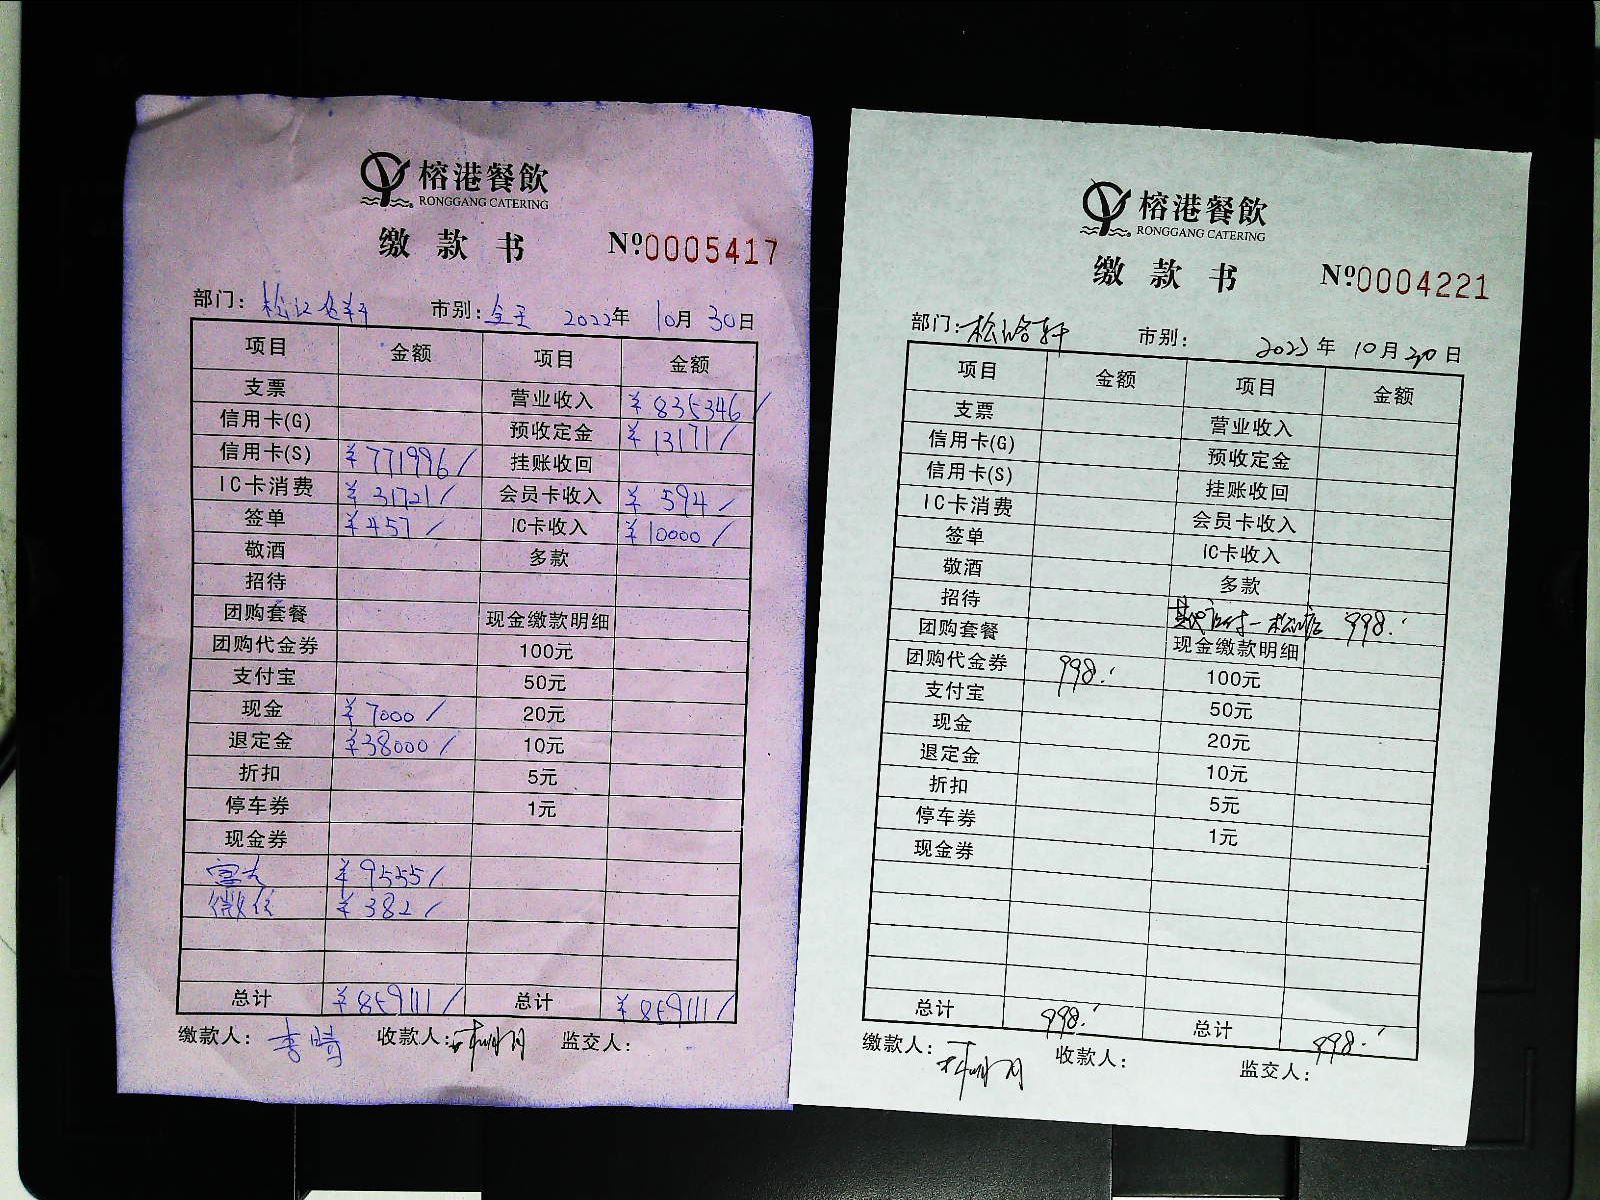 榕港餐飲
RONGGANG CATERING
缴款书 №0005417
部门: 市别:全天 2022年 10月 30日
项目 金额 项目 金额
支票 营业收入 ¥835346/
信用卡(G) 预收定金 ¥13171/
信用卡(S) ¥771996/ 挂账收回
IC卡消费 ¥31721/ 会员卡收入 ¥594/
签单 ¥457/ IC卡收入 ¥10000/
敬酒 多款
招待
团购套餐 现金缴款明细
团购代金券 100元
支付宝 50元
现金 ¥7000/ 20元
退定金 ¥38000/ 10元
折扣 5元
停车券 1元
现金券
¥9555/
微信 ¥382/
总计 ¥859111/ 总计 ¥859111/
缴款人:李晴 收款人: 监交人:
榕港餐飲
RONGGANG CATERING
缴款书 №0004221
部门: 市别: 2022年 10月30日
项目 金额 项目 金额
支票 营业收入
信用卡(G) 预收定金
信用卡(S) 挂账收回
IC卡消费 会员卡收入
签单 IC卡收入
敬酒 多款
招待 998.
团购套餐 现金缴款明细
团购代金券 998. 100元
支付宝 50元
现金 20元
退定金 10元
折扣 5元
停车券 1元
现金券
总计 998. 总计 998.
缴款人: 收款人: 监交人: